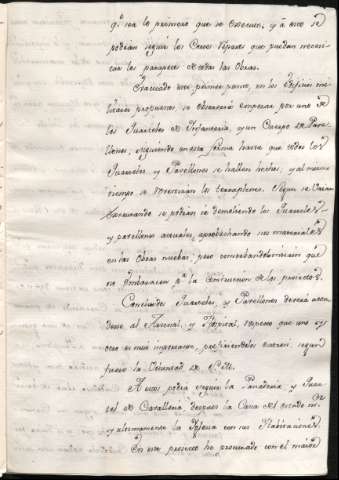 qᵉ sea lo primero que se execute, y à esto se
podràn seguir los Cuerpos que puedan necesi-
tar los parapetos de todas las Obras.
Evacuado este primer punto, en los Edificios mi-
litares propuestos, se observarà empezar por uno de
los Quarteles de Infanteria, y un Cuerpo de Pave-
llones, siguiendo en esta forma hasta que todos los
Quarteles, y Pavellones se hallen hechos, y al mismo
tiempo se los terraplenes. Segun se vaian
se podràn ir demoliendo los Quarteles
y pavellones actuales, aprovechando sus materiales
en las Obras nuevas, pero con que
no embarazen pᵃ la construccion de los proiectos.
Concluidos Quarteles, y Pavellones deverà aten-
derse al Arsenal, y Hospital, respecto que uno y
otro es mui importante, prefiriendoles segun
fuere la Voluntad de
A esto podrà seguir la Panaderia, y Quar-
tel de Cavalleria, despues la Casa del
y ultimamente la Iglesia con sus Habitaciones.
En este proiecto he procurado con el maior